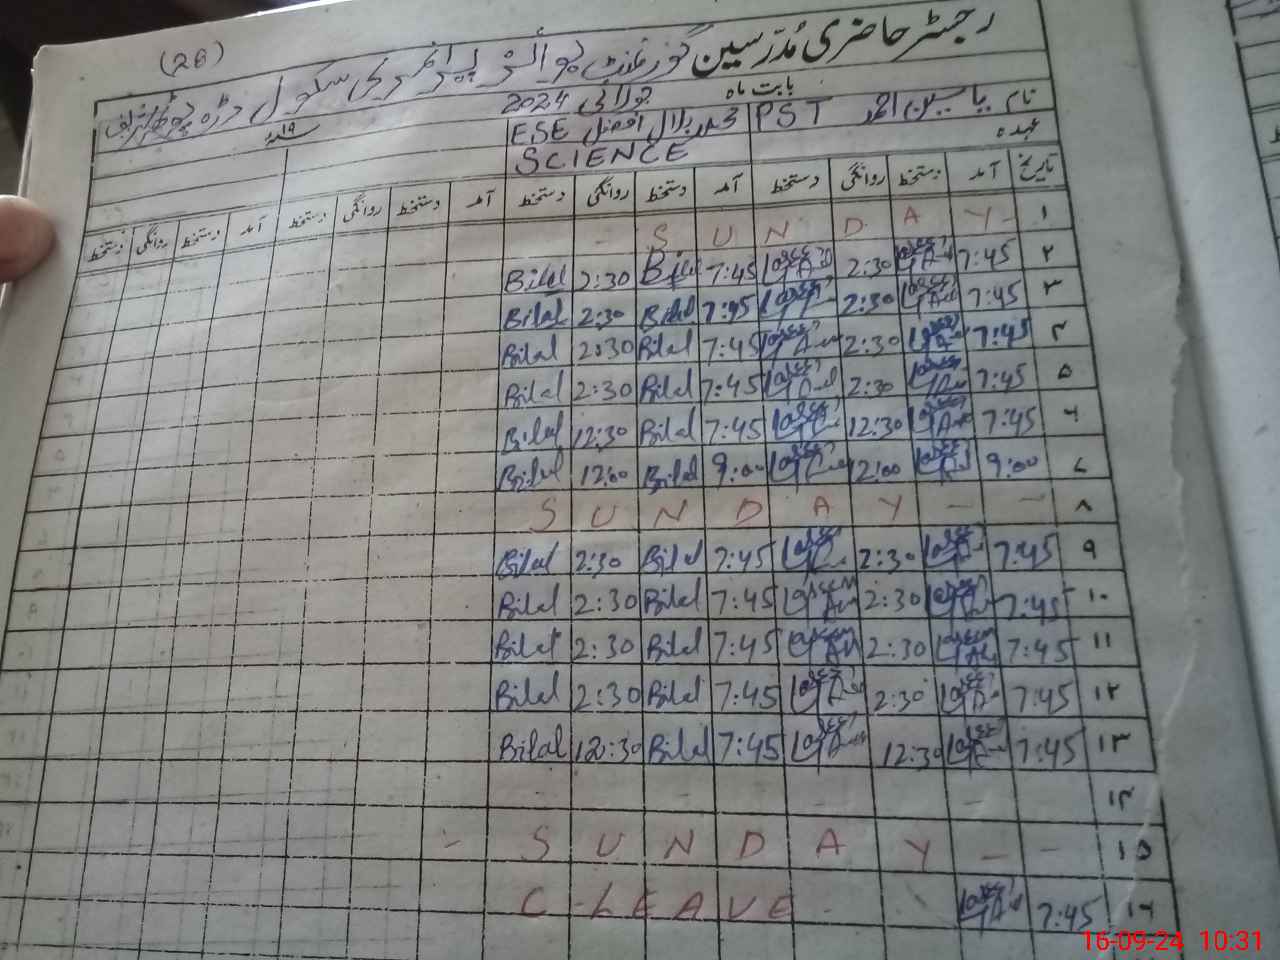 (26)
رجسٹر حاضری مُدرّسین گورنمنٹ بوائز پرائمری سکول
بابت ماہ جولائی 2024 ۱۹ء
نام یاسین احمد PST محمد بلال افضل ESE
عہدہ SCIENCE
تاریخ آمد دستخط روانگی دستخط آمد دستخط روانگی دستخط آمد دستخط روانگی دستخط آمد دستخط روانگی دستخط
۱ SUNDAY
۲ 7:45 2:30 7:45 Bilal 2:30 Bilal
۳ 7:45 2:30 7:45 Bilal 2:30 Bilal
۴ 7:45 2:30 7:45 Bilal 2:30 Bilal
۵ 7:45 2:30 7:45 Bilal 2:30 Bilal
۶ 7:45 12:30 7:45 Bilal 12:30 Bilal
۷ 9:00 12:00 9:00 Bilal 12:00 Bilal
۸ SUNDAY
۹ 7:45 2:30 7:45 Bilal 2:30 Bilal
۱۰ 7:45 2:30 7:45 Bilal 2:30 Bilal
۱۱ 7:45 2:30 7:45 Bilal 2:30 Bilal
۱۲ 7:45 2:30 7:45 Bilal 2:30 Bilal
۱۳ 7:45 12:30 7:45 Bilal 12:30 Bilal
۱۴
۱۵ SUNDAY
۱۶ 7:45 C-LEAVE
16-09-24 10:31